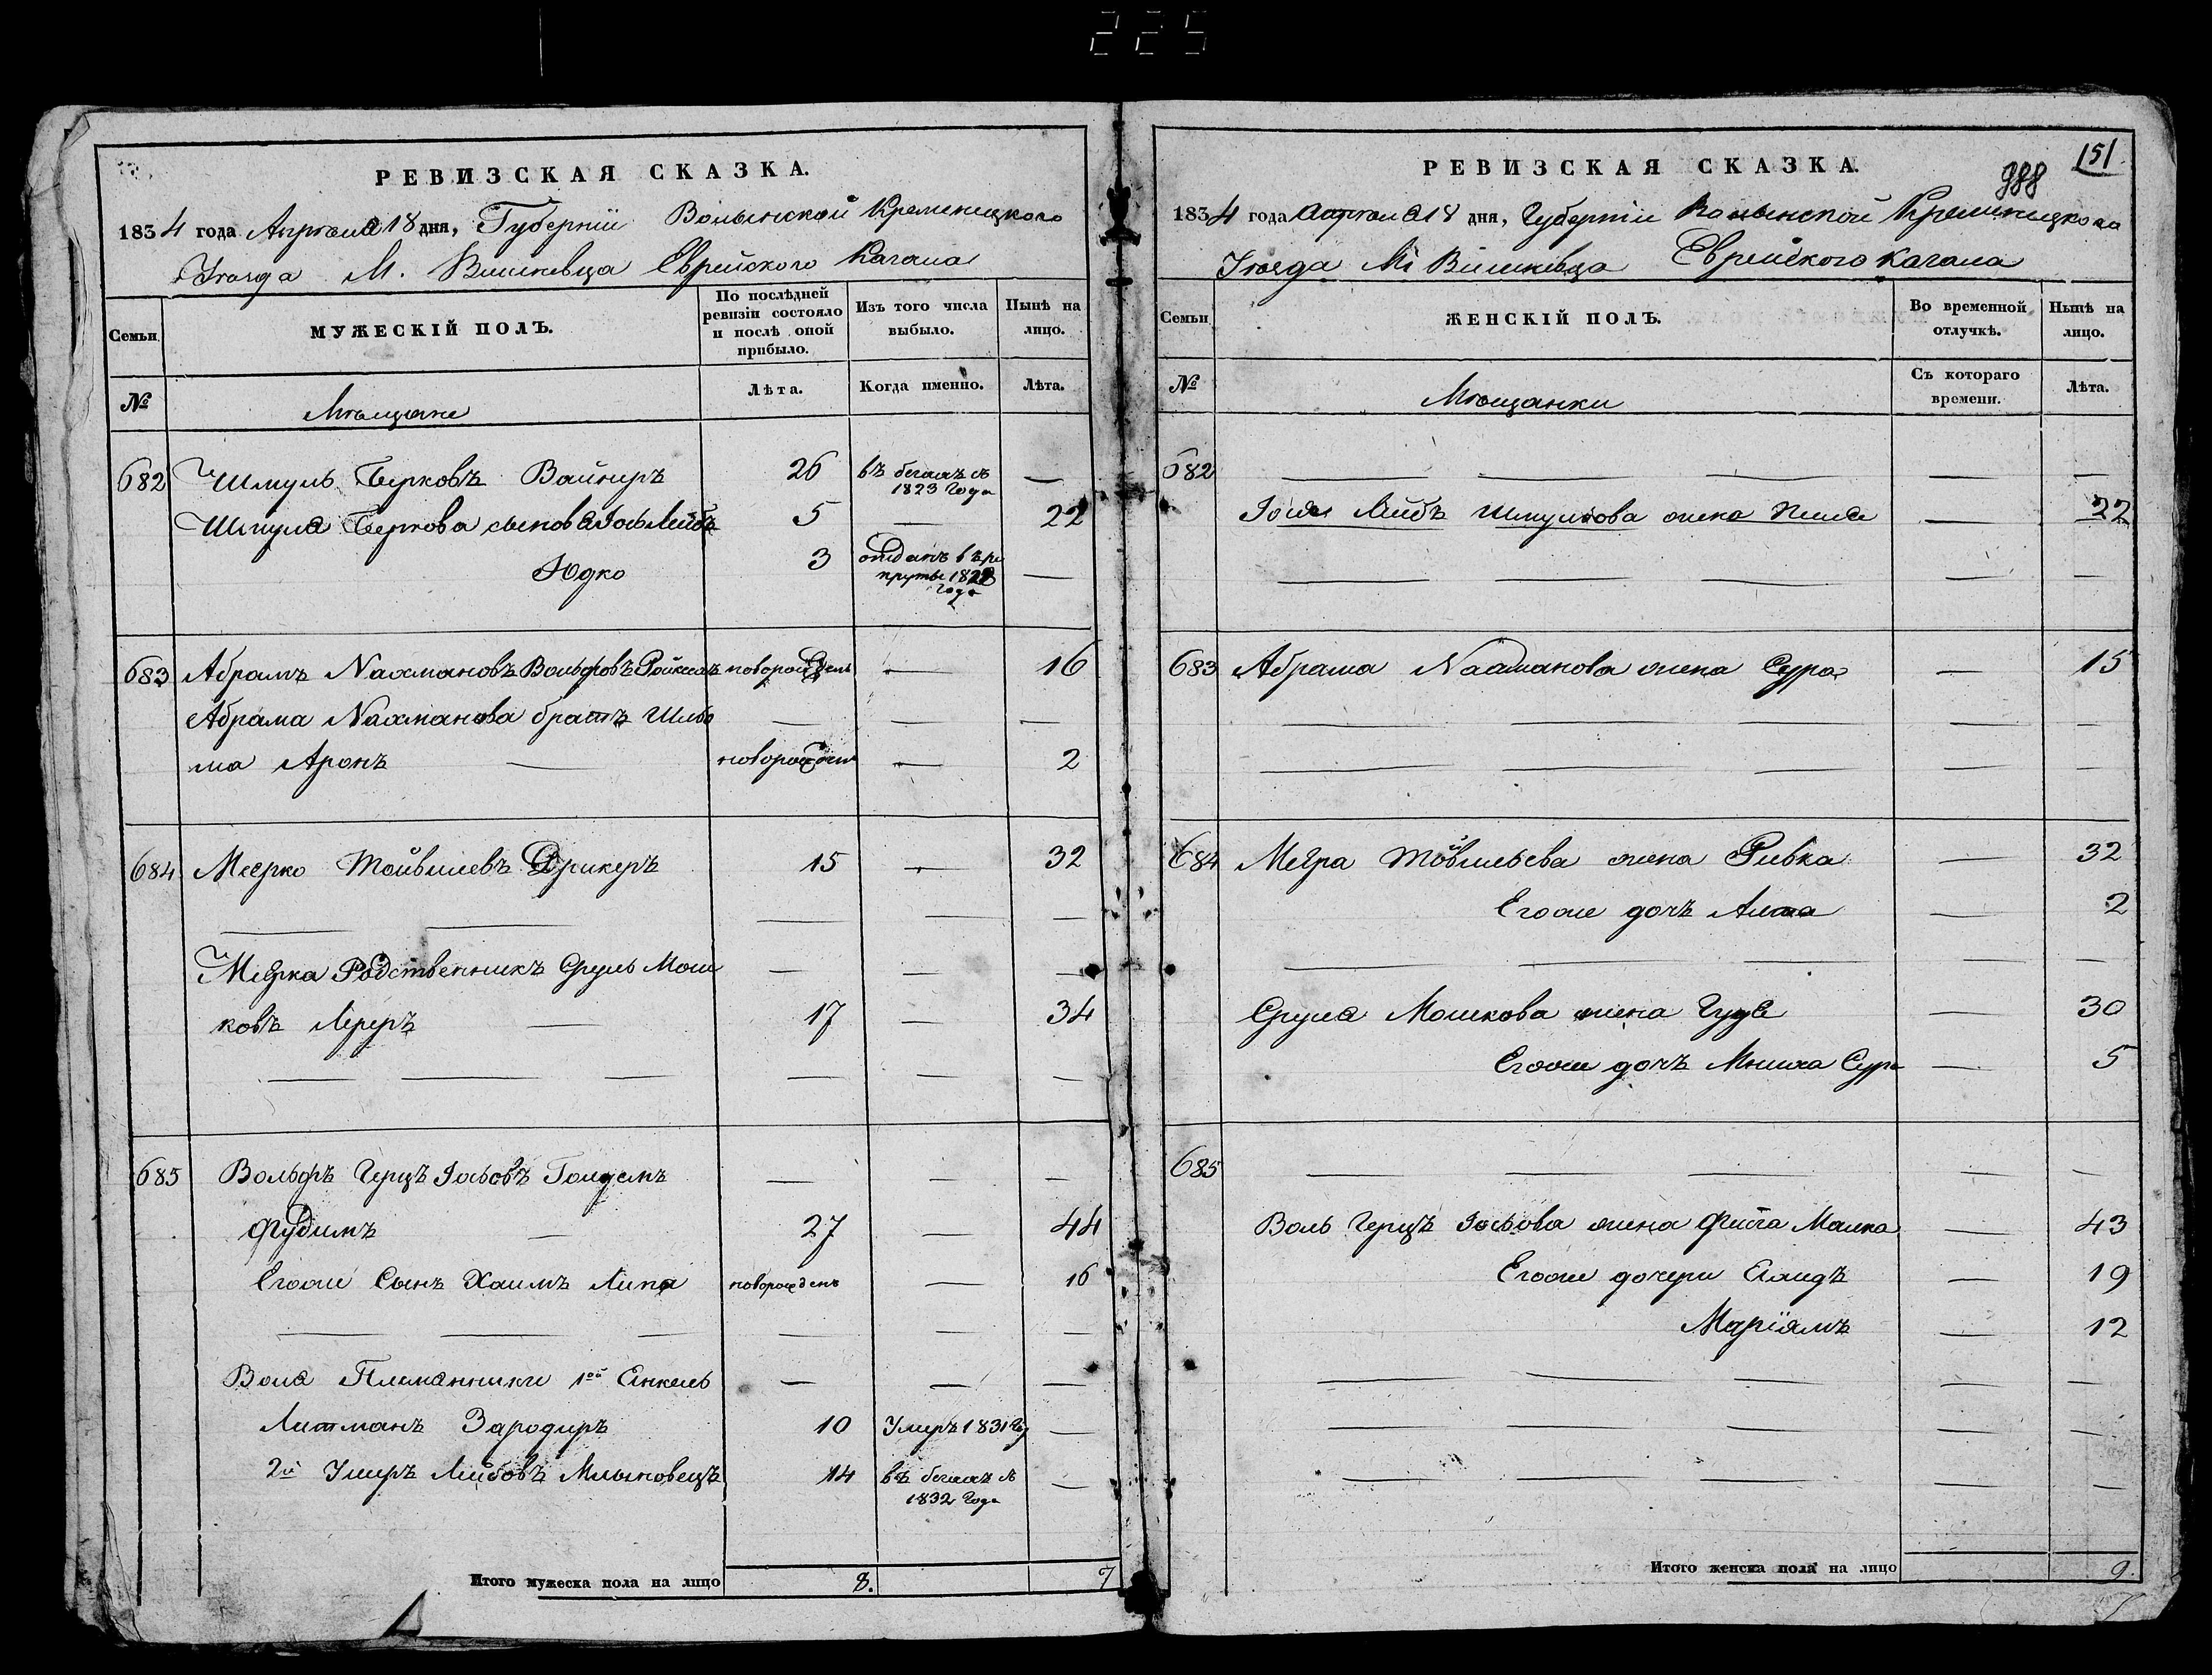 225
РЕВИЗСКАЯ СКАЗКА.
1834 года Апреля 18 дня, Губернiи Волынской Кременецкого
Уезда М. Вишневца Еврейского Кагала
Семьи
МУЖЕСКIЙ ПОЛЪ.
По послѣдней ревизiи состояло и послѣ оной прибыло.
Изъ того числа выбыло.
Нынѣ на лицо.
№
Мѣщане
Лѣта.
Когда именно.
Лѣта.
682 Шмуль Берковъ Вайнеръ 26 въ бегахъ съ 1823 Года —
Шмуля Беркова сыновя Iось Лейбъ 5 — 22
Юдко 3 отданъ въ рекруты 1828 Года —
683 Абрамъ Нахмановъ Вольфовъ Ройхелъ новорожденъ — 16
Абрама Нахманова братъ Шлио — — —
ма Аронъ — новорожденъ — 2
684 Меерко Тойвилевъ Дрикеръ 15 — 32
— — — — —
Меерка Родственникъ Сруль Мош — — —
ковъ Лереръ — 17 — 34
— — — — — —
685 Вольфъ Герцъ Iосьовъ Голдсмъ — — —
Фудимъ — 27 — 44
Егоже Сынъ Хаимъ Липа новорожденъ — 16
— — — — — —
Воля Племянники 1ой Янкель — — —
Литманъ Зародиръ 10 Умеръ 1831 Го —
2й Умеръ Лейбовъ Млыновецъ 14 въ бегахъ съ 1832 Года —
Итого мужеска пола на лицо 8. 7
РЕВИЗСКАЯ СКАЗКА.
988
151
1834 года Апреля 18 дня, Губернiи Волынской Кременецкого
Уезда М. Вишневца Еврейского Кагала
Семьи
ЖЕНСКIЙ ПОЛЪ.
Во временной отлучкѣ.
Нынѣ на лицо.
№
Мѣщанки
Съ котораго времени.
Лѣта.
682 — — — — —
Iося Лейбъ Шмулиова жена — 22
— — — — —
683 Абрама Нахманова жена Сура — 15
— — — — —
— — — — —
684 Меера Товильева жена Ривка — 32
Егоже дочъ — 2
— — — — —
Сруля Мошкова жена Гудя — 30
Егоже дочъ Сура — 5
685 — — — — —
Воль Герцъ Iосьова жена Фейга Малка — 43
Егоже дочери — 19
Марiямъ — 12
— — — — —
— — — — —
— — — — —
Итого женска пола на лицо 9.